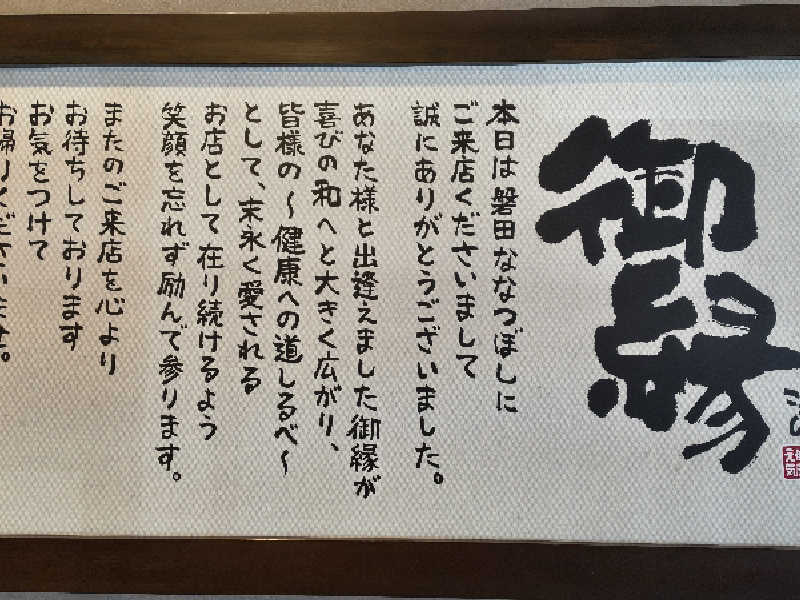 御縁
本日は磐田ななつぼしに
ご来店くださいまして
誠にありがとうございました。
あなた様と出逢えました御縁が
喜びの和へと大きく広がり、
皆様の〜健康への道しるべ〜
として、末永く愛される
お店として在り続けるよう
笑顔を忘れず励んで参ります。
またのご来店を心より
お待ちしております
お気をつけて
お帰りくださいませ。